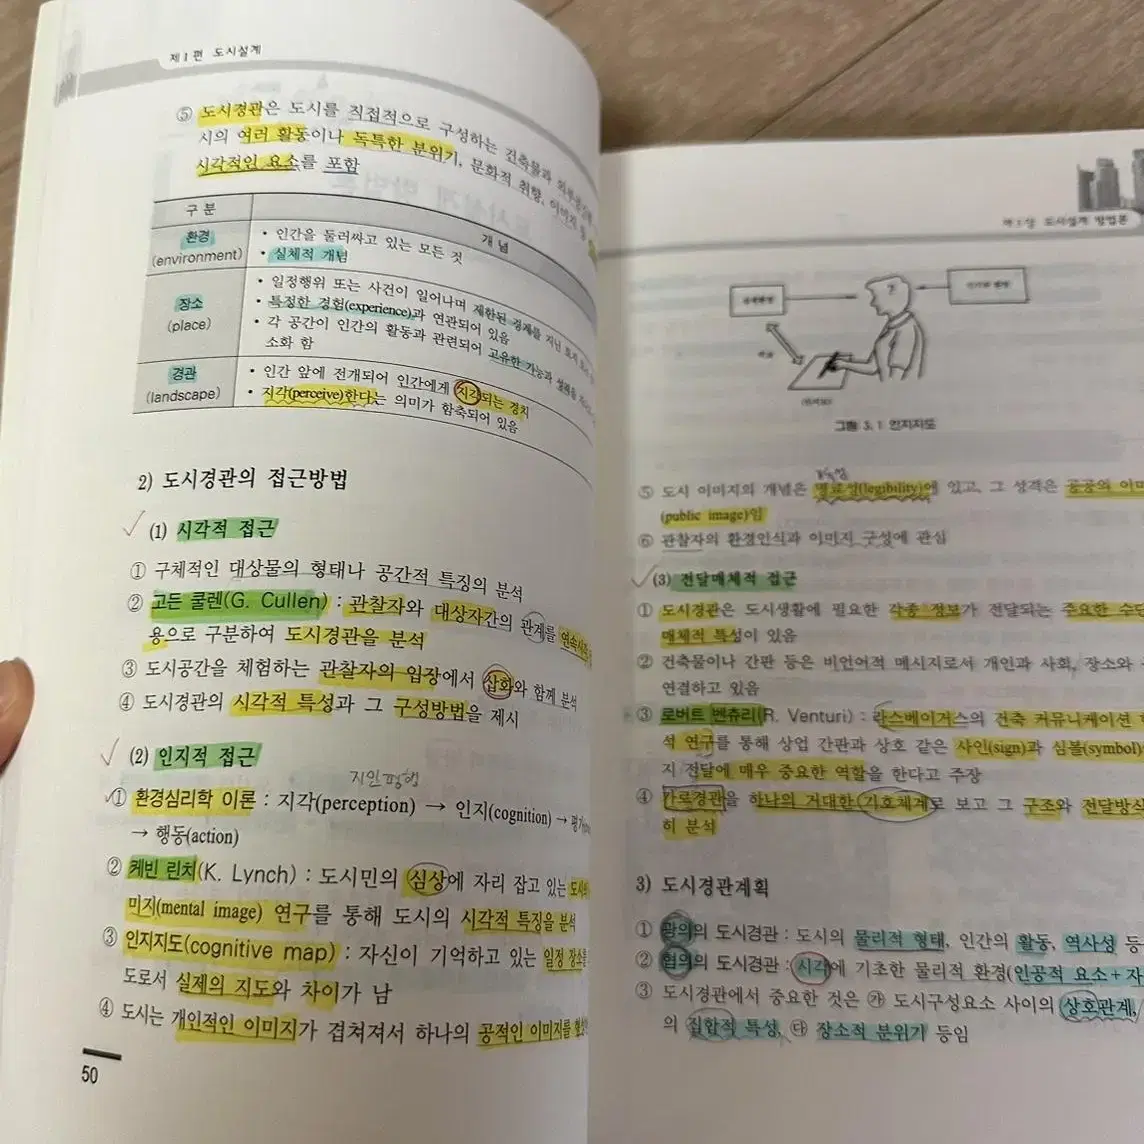 제1편 도시설계
⑤ 도시경관은 도시를 직접적으로 구성하는 건축물과
시의 여러 활동이나 독특한 분위기, 문화적 취향, 이미지 등
시각적인 요소를 포함
구 분
개 념
환경
(environment)
• 인간을 둘러싸고 있는 모든 것
• 실체적 개념
장소
(place)
• 일정행위 또는 사건이 일어나며 제한된 경계를 지닌
• 특정한 경험(experience)과 연관되어 있음
• 각 공간이 인간의 활동과 관련되어 고유한 기능과
소화 함
경관
(landscape)
• 인간 앞에 전개되어 인간에게 시각되는 경치
• 지각(perceive)한다는 의미가 함축되어 있음
2) 도시경관의 접근방법
(1) 시각적 접근
① 구체적인 대상물의 형태나 공간적 특징의 분석
② 고든 쿨렌(G. Cullen) : 관찰자와 대상자간의 관계를
용으로 구분하여 도시경관을 분석
③ 도시공간을 체험하는 관찰자의 입장에서 삽화와 함께 분석
④ 도시경관의 시각적 특성과 그 구성방법을 제시
(2) 인지적 접근
지인평행
① 환경심리학 이론 : 지각(perception) → 인지(cognition) →
→ 행동(action)
② 케빈 린치(K. Lynch) : 도시민의 심상에 자리 잡고 있는
미지(mental image) 연구를 통해 도시의 시각적 특징을 분석
③ 인지지도(cognitive map) : 자신이 기억하고 있는 일정 장소를
도로서 실제의 지도와 차이가 남
④ 도시는 개인적인 이미지가 겹쳐져서 하나의 공적인 이미지를
50
제3장 도시설계 방법론
?
그림 3.1 인지지도
⑤ 도시 이미지의 개념은 명료성(legibility)에 있고, 그 성격은 공공의
(public image)임
⑥ 관찰자의 환경인식과 이미지 구성에 관심
(3) 전달매체적 접근
① 도시경관은 도시생활에 필요한 각종 정보가 전달되는 주요한
매체적 특성이 있음
② 건축물이나 간판 등은 비언어적 메시지로서 개인과 사회, 장소와
연결하고 있음
③ 로버트 벤츄리(R. Venturi) : 라스베이거스의 건축 커뮤니케이션
석 연구를 통해 상업 간판과 상호 같은 사인(sign)과 심볼(symbol)
지 전달에 매우 중요한 역할을 한다고 주장
④ 간로경관을 하나의 거대한 기호체계로 보고 그 구조와
히 분석
3) 도시경관계획
① 광의의 도시경관 : 도시의 물리적 형태, 인간의 활동, 역사성 등
② 협의의 도시경관 : 시각에 기초한 물리적 환경(인공적 요소+
③ 도시경관에서 중요한 것은 ㉮ 도시구성요소 사이의 상호관계,
의 집합적 특성, ㉰ 장소적 분위기 등임